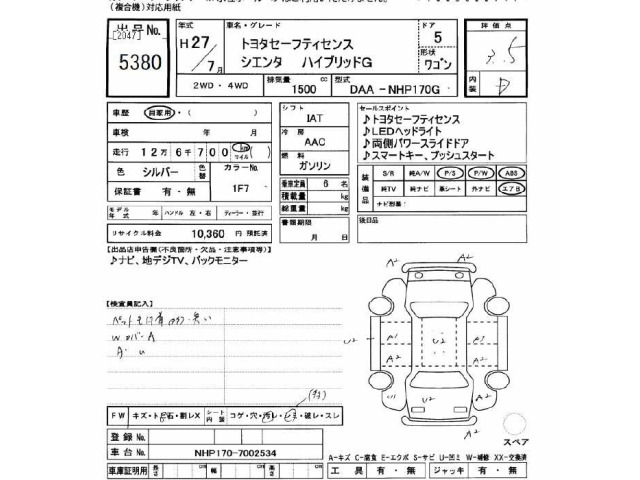 (複合機)対応用紙
出品No.
[2047]
5380
年式
H27/7月
車名・グレード
トヨタセーフティセンス
シエンタ ハイブリッドG
ドア
5
形状
ワゴン
評価点
3.5
内装
D
2WD・4WD
排気量
1500
cc
型式
DAA -NHP170G
車歴 自家用・( )
車検 年 月
走行 12万6千700 km マイル ( )
色 シルバー
色替
カラーNo.
1F7
保証書 有・無
モデル年式 年 ハンドル 左・右 ディーラー・並行
リサイクル料金 10,360 円 預託済
シフト
IAT
冷房
AAC
燃料
ガソリン
乗車定員 6 名
積載量 kg
総重量 kg
書類期限
月 日
セールスポイント
♪トヨタセーフティセンス
♪LEDヘッドライト
♪両側パワースライドドア
♪スマートキー、プッシュスタート
装備品
S/R 純A/W P/S P/W ABS
純TV 純ナビ 革シート 外ナビ エアB
ナビ形態:
後日品
【出品店申告欄(不良箇所・欠品・注意事項等)】
♪ナビ、地デジTV、バックモニター
【検査員記入】
WカバーA
A・U
F W キズ・ト石・割レX
シート内装
コゲ・穴・汚レ・シミ・破レ・スレ
登録No.
車台No. NHP170-7002534
車庫証明用 長さ cm 幅 cm 高さ cm
A2
A2
U2
A1
A2
U2
A1
A2
U2
A2
A2
A2
スペア
A-キズ C-腐食 E-エクボ S-サビ U-凹ミ W-補修 XX-交換済
工具 有・無 ジャッキ 有・無